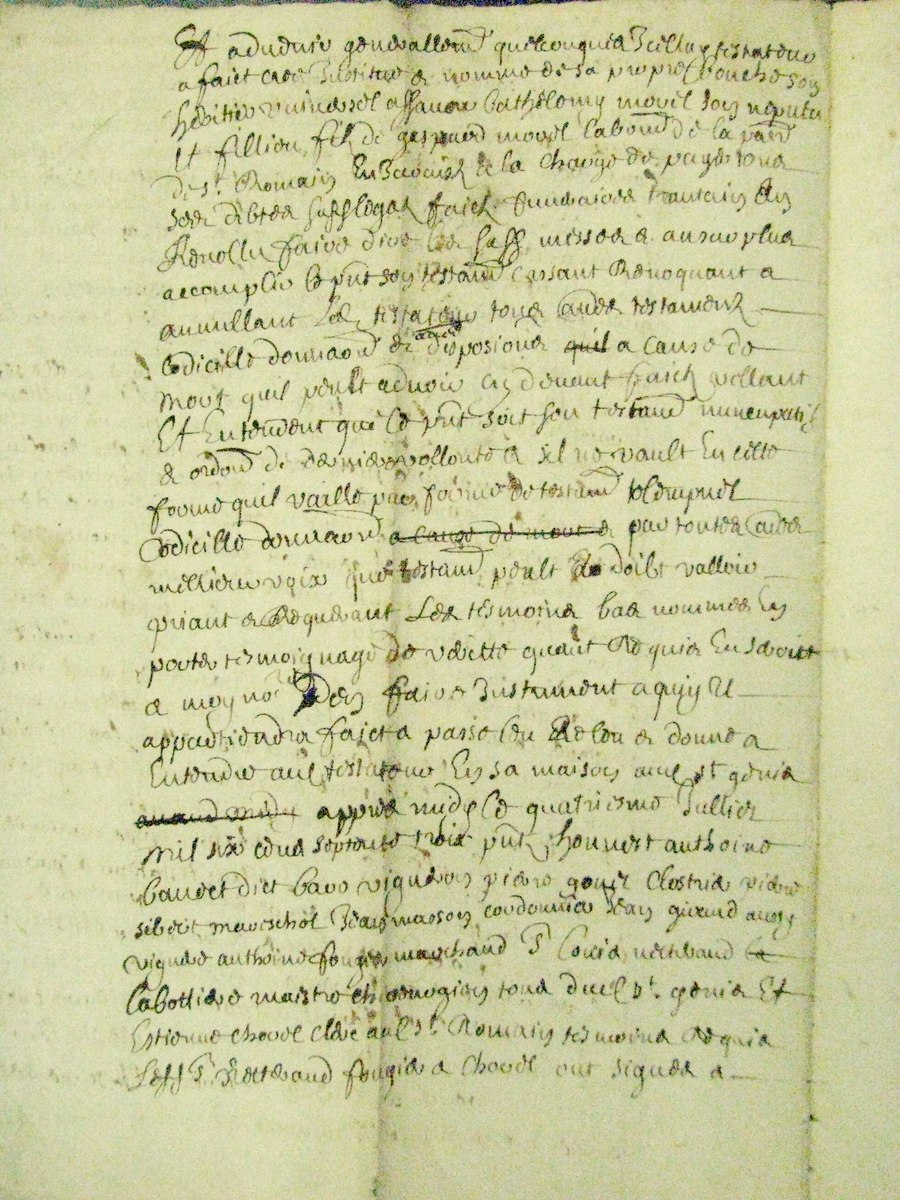 Et advenir generallemt quelconques Icelluy testateur
a faict cree Institue & nomme de sa propre bouche son
heritier universel assavoir Barthelemy movel son nepveu
et fillieu fils de gaspard movel labour de la parr
de st. Romain En & a la charge de payer tous
ses dibtes legatz faictz funeraires
faire dire les messes & au surplus
accomplir le pnt son testamt Cassant Revoquant &
annullant led testateur tous autres testamentz
Codicille donnaons & dispositions quil a cause de
mort quil peult advoir cy devant faictz vollant
Et Entendent que ce pnt soit son testamt nuncupatif
& ordonce de derniere vollonte & sil ne vault En cette
forme quil vaille par forme de testamt
Codicille donnaon a cause de mort & par toutes autres
meilleur voix que testamt peult & doibt valloir
priant & Requerant Les tesmoins bas nommes En
porter tesmoignage de veritte quant Requis En seront
& moy nore Den faire Instrument a quy Il
appartiendra faict & passe leu Releu & donne a
Entendre aud testateur En sa maison aud st genis
avand midy appres midy le quatriesme Juillet
mil six cens septante trois pntz honnest anthoine
baudet dict bavo vigneron piere gonil Clostrie piere
sibert mareschol Jean masson cordonnier Jean giraud aussy
vignero anthoine fougier marchand Sr Louis nectoraud
labottiere maistre chirurgien tous dud st. genis Et
Estienne Chovel Clerc aud st. Romain tesmoins Requis
Lesd Sr nectoraud fougier & Chovel ont signes &